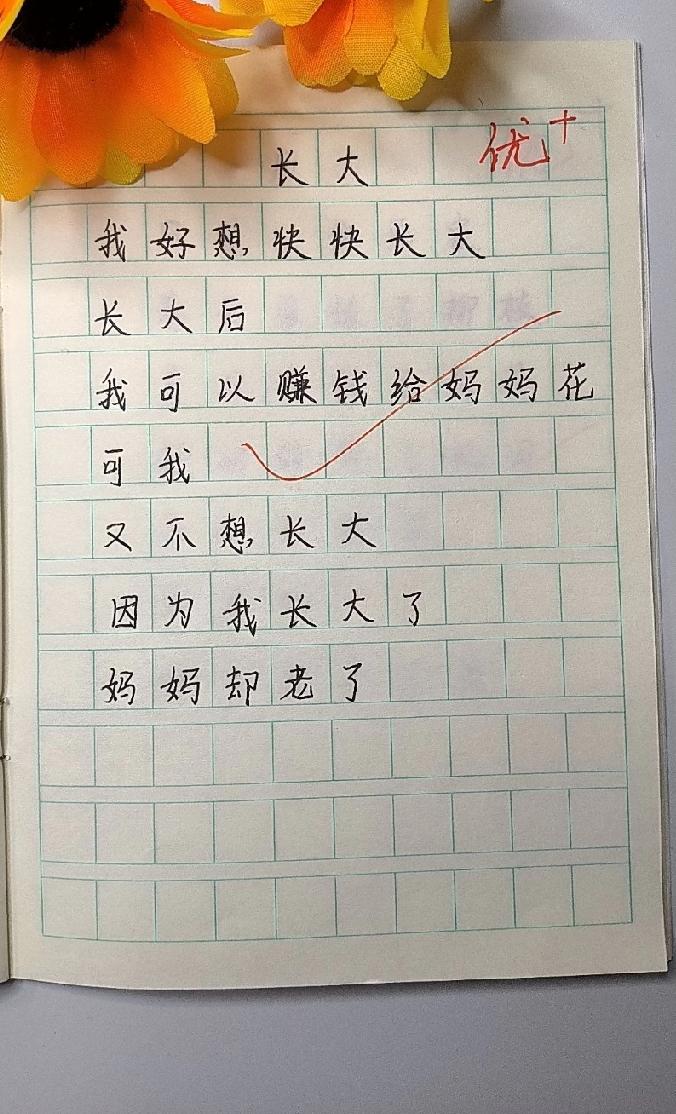 长大 优+
我好想快快长大
长大后
我可以赚钱给妈妈花
可我
又不想长大
因为我长大了
妈妈却老了